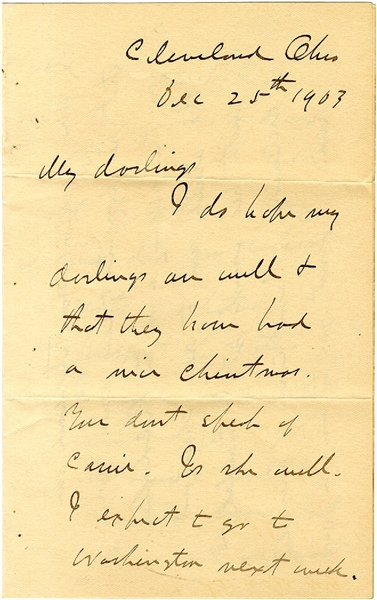 Cleveland Ohio
Dec 25th 1903
My darlings
I do hope my
darlings are well &
that they have had
a nice Christmas.
You don't speak of
Carrie. Is she well.
I expect to go to
Washington next week.